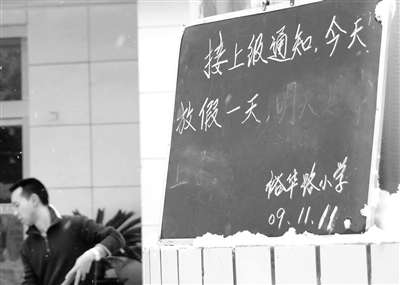 接上级通知,今天
放假一天,明天
裕华路小学
09.11.11